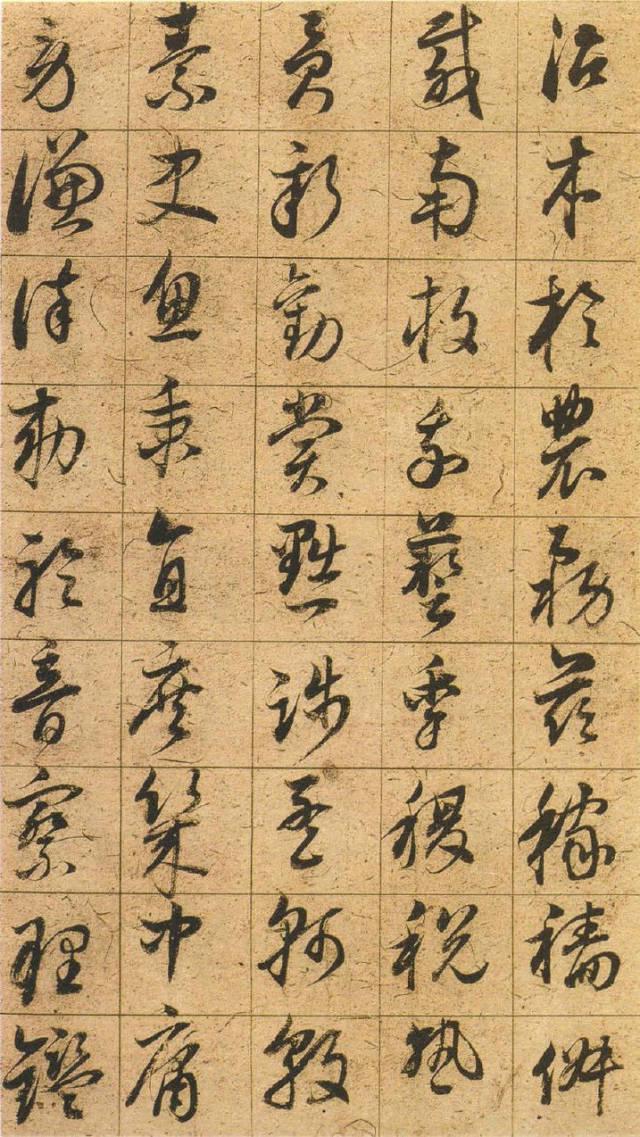 治本於農務茲稼穡俶
載南畝我藝黍稷稅熟
貢新勸賞黜陟孟軻敦
素史魚秉直庶幾中庸
勞謙謹勅聆音察理鑑